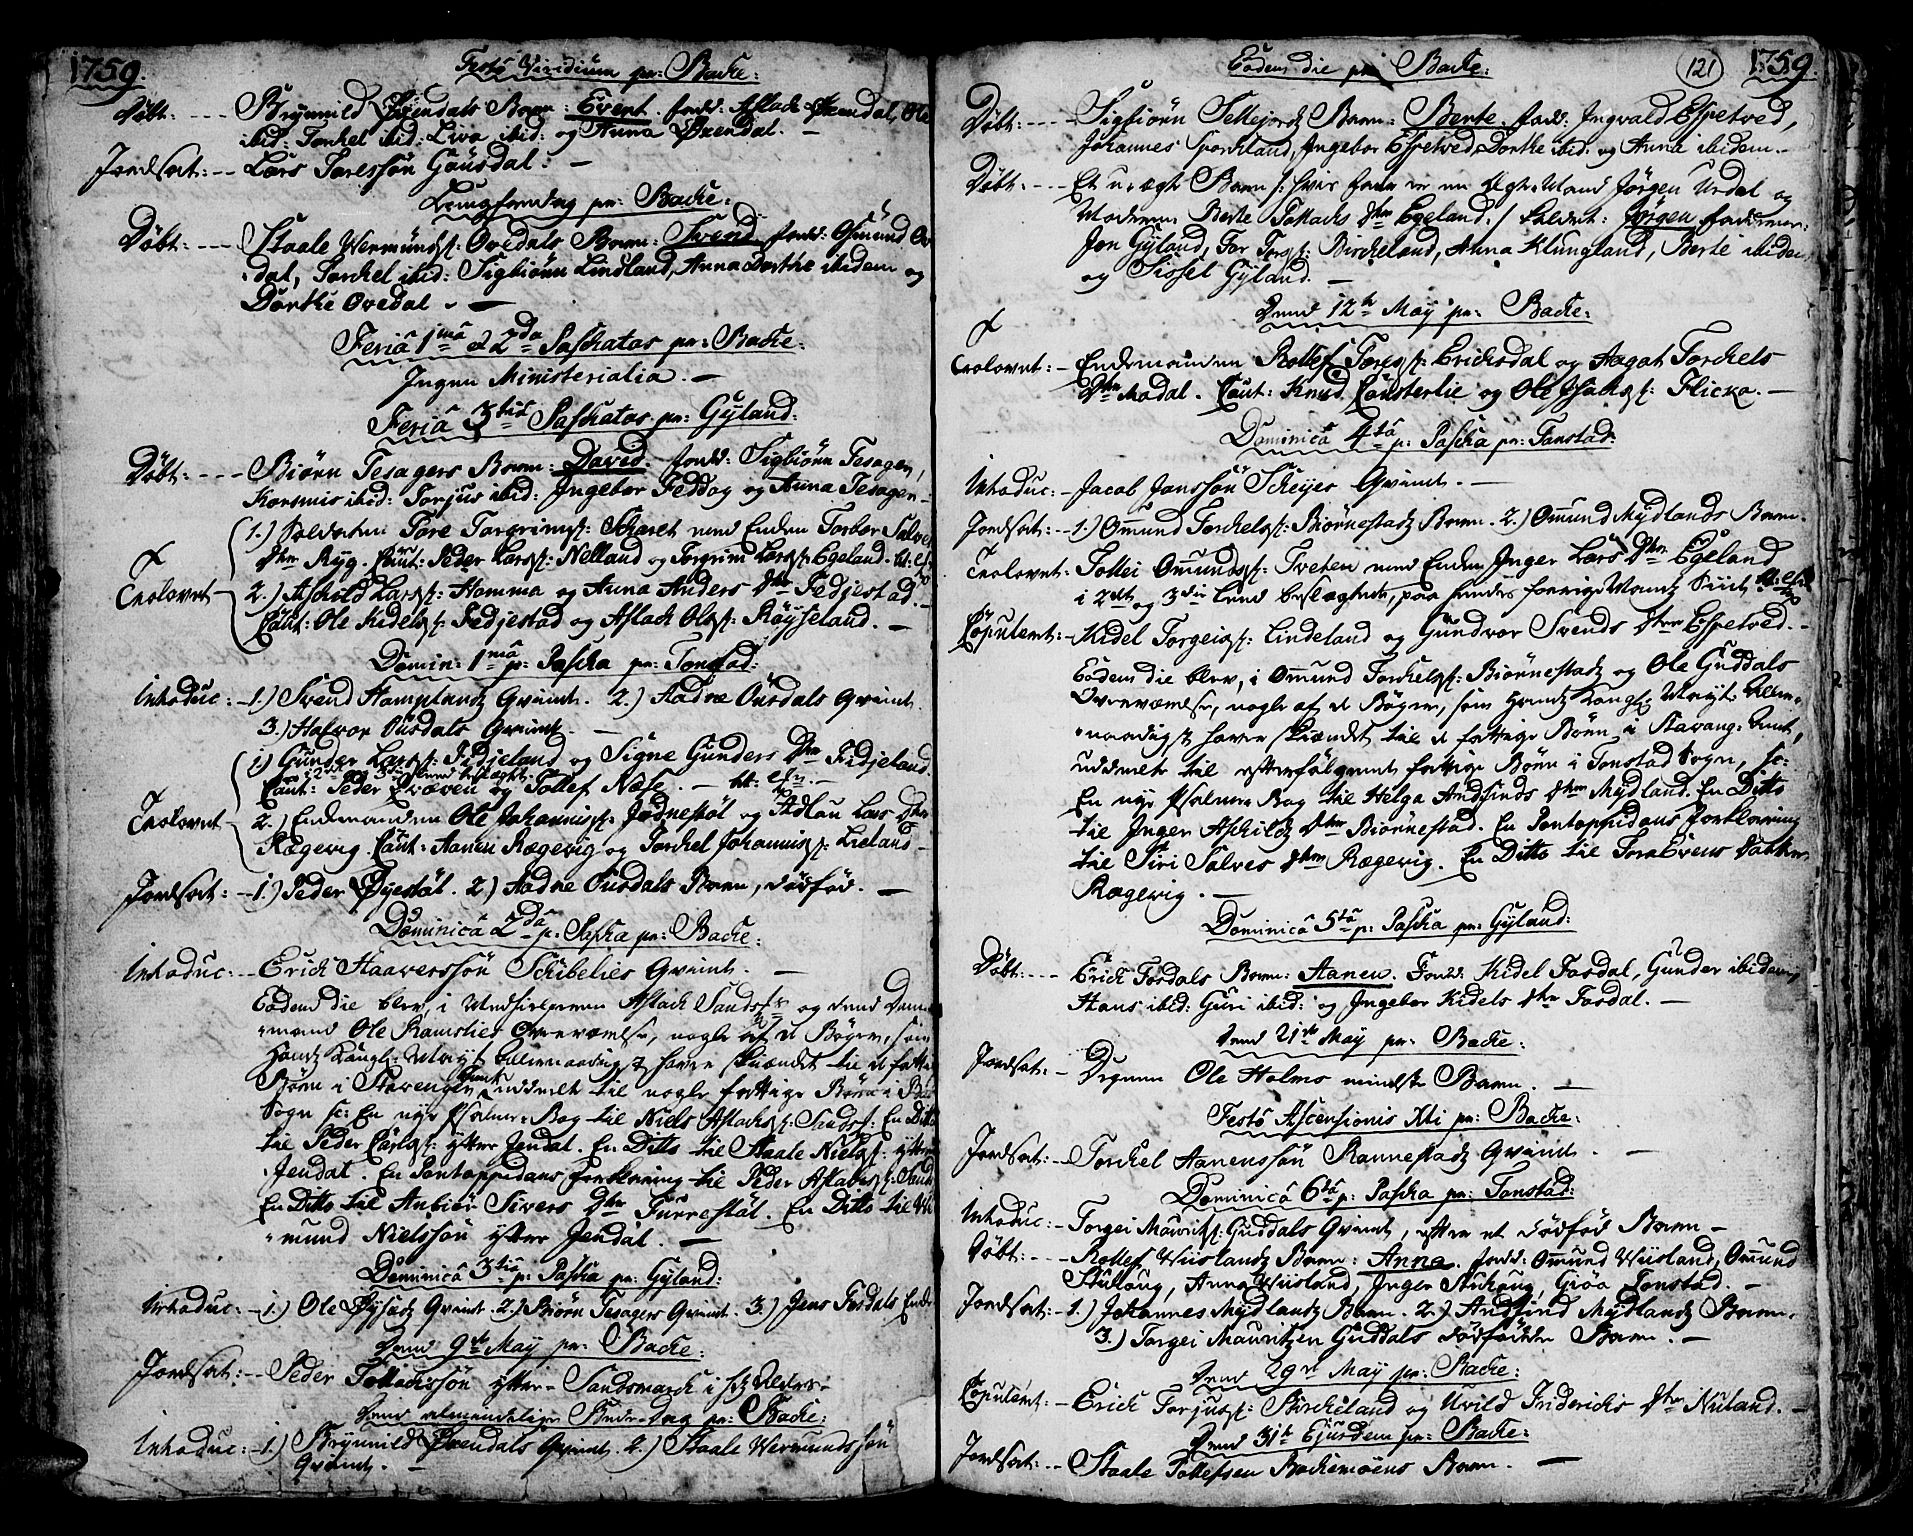 1759.
Festô Viridium pr: Backe:
Døbt: Brynnild Øxendals Barn: Event. fadd: Aslack Øxendal, Ole
ibid: Torkel ibid: Live ibid: og Anna Øxendal. —
Jordsat: Lars Taressøn Gausdal. —
Langfredag pr: Backe:
Døbt: Staale Wermunds: Ovedals Barn: Svend. fadd: Gmund Ove-
dal, Torckel ibid: Sigbiørn Linsland, Anna Dorthe ibidem og
Dorthe Ovedal. —
Feria 1mâ et 2dâ Paschatos pr: Backe:
Ingen Ministerialia. —
Feriâ 3tiâ Paschatos pr: Gyland:
Døbt: Biørn Tesagers Barn: David. fadd: Sigbiørn Tesager,
Rasmus ibid: Torjus ibid: Ingebor Feddog og Anna Tesager.
Trolovet 1.) Soldaten Tore Torgrims: Skaret med Enken Torbor Salves
Dtr Ryg. Caut: Peder Lars: Nelland og Torgrim Lars: Egeland.
2.) Aschild Lars: Homma og Anna Anders Dtr Fedjestad.
Caut: Ole Kidels: Fedjestad og Aslack Ols: Røyseland. —
Domin: 1mâ p: Pascha pr: Tonstad:
Introduc: 1.) Svend Hamplands Qvinde. 2.) Aadne Ousdals Qvinde.
3.) Halvor Ousdals Qvinde. —
Trolovet 1.) Gunder Lars: Fidjeland og Signe Gunders Dtr Fidjeland.
Caut: Peder Qvæven og Tollef Næse. —
2.) Enkemanden Ole Johannis: Jødnestøl og Adlou Lars Dtr
Rægevig. Caut: Aanen Rægevig og Torckel Johannis: Lieland.
Jordsat: 1.) Peder Øyestøl. 2.) Aadne Ousdals Barn, dødfød. —
Dominicâ 2dâ p: Pascha pr: Backe:
Introduc: Erick Haaverssøn Schibelies Qvinde. —
Eodem die blev, i Medhielperen Aslack Sands og dend Danne-
mand Ole Ramslies Overværelse, nogle af de Bøger, som
Hands Kongl: Mayst allernaadigst haver skiændet til de fattige
Børn i Stavanger Amt uddeelt til nogle fattige Børn i Backe
Sogn sc: En nye Psalme-Bog til Niels Aslacks: Sands: En Ditto
til Peder Carls: yttre Jendal. En Ditto til Staale Niels: yttre
Jendal. En Pontoppidans Forklaring til Peder Aslacks: Sand
En Ditto til Anbiør Sivers Dtr Furrestøl. En Ditto til We-
mund Nielssøn yttre Jendal. —
Dominicâ 3tiâ p: Pascha pr: Gyland:
Introduc: 1.) Ole Øysæds Qvinde. 2.) Biørn Tesagers Qvinde. 3.) Jens Fosdals Enke
Dend 9de May pr: Backe:
Jordsat: Peder Tollackssøn yttre-Sandsmarck
Dend almindelige Bede-Dag pr: Backe:
Introduc: 1.) Brynnild Øxendals Qvinde. 2.) Staale Wermundssøn
Qvinde. —
Eodem die pr: Backe:
121
1759.
Døbt: Sigbiørn Sellejords Barn: Berte. fadd: Ingvald Espetved,
Johannes Sporkland, Ingebor Espetved, Dorthe ibid: og Anna ibidem.
Døbt: Et uægte Barn /: hvis fader er en ægte Mand Jørgen Urdal og
Moderen Berte Tollacks Dtr Egeland :/ kaldet: Jørgen. fadderne:
Jon Gyland, Tor Tors: Bircheland, Anna Klungland, Berte ibidem
og Sissel Gyland. —
Dend 12te May pr: Backe:
Trolovet: Enckemanden Rollef Tores: Ericksdal og Aagot Torckels
Dtr Modal. Caut: Knud Cousterlie og Ole Isacks: Flicka. —
Dominicâ 4tâ p: Pascha pr: Tonstad:
Introduc: Jacob Janssøn Schejes Qvinde. —
Jordsat: 1.) Omund Torckels: Biørnestads Barn. 2.) Omund Mydlands Barn.
Trolovet: Tollei Omunds: Tveten med Enken Inger Lars Dtr Egeland
i 2det og 3die Leed beslægtede, paa hendes forrige Mands Siide
Copuleret: Kidel Torgeis: Lindeland og Gundvor Svends Dtr Espetved.
Eodem die blev, i Omund Torckels: Biørnestads og Ole Guddals
Overværelse, nogle af de Bøger, som Hands Kongl: Mayst: Aller-
naadigst haver skiændet til de fattige Børn i Stavang: Amt,
uddeelt til efterfølgende fattige Børn i Tonstad Sogn, sc:
En nye Psalme-Bog til Helga Andfinds Dtr Mydland. En Ditto
til Inger Aschilds Dtr Biørnestad. En Pontoppidans Forklaring
til Siri Salves Dtr Rægevig. En Ditto til Tora Evens Datter
Rægevig. —
Dominicâ 5tâ p: Pascha pr: Gyland:
Døbt: Erick Fosdals Barn: Aanen. Fadd: Kidel Fosdal, Gunder ibidem,
Hans ibid: Guri ibid: og Ingebor Kidels Dtr Fosdal. —
Dend 21de May pr: Backe:
Jordsat: Degnen Ole Holms mindste Barn. —
Festô Ascensionis Xti pr: Backe:
Jordsat: Torckel Aanenssøn Rannestads Qvinde. —
Dominicâ 6tâ p: Pascha pr: Tonstad:
Introduc: Torgei Mourits: Guddals Qvinde, efter et dødfød Barn —
Døbt: Rollef Wiislands Barn: Anna. fadd: Omund Wiisland, Omund
Skulaug, Anna Wiisland, Inger Skulaug, Giøa Tonstad. —
Jordsat: 1.) Johannes Mydlands Barn. 2.) Andfind Mydlands Barn.
3.) Torgei Mauritzen Guddals dødfødde Barn. —
Dend 29de May pr: Backe:
Copuleret: Erick Torjus: Bircheland og Uvild Friderichs Dtr Nuland. —
Dend 31te Ejusdem pr: Backe:
Jordsat: Staale Tollefsen Backemoens Barn. —